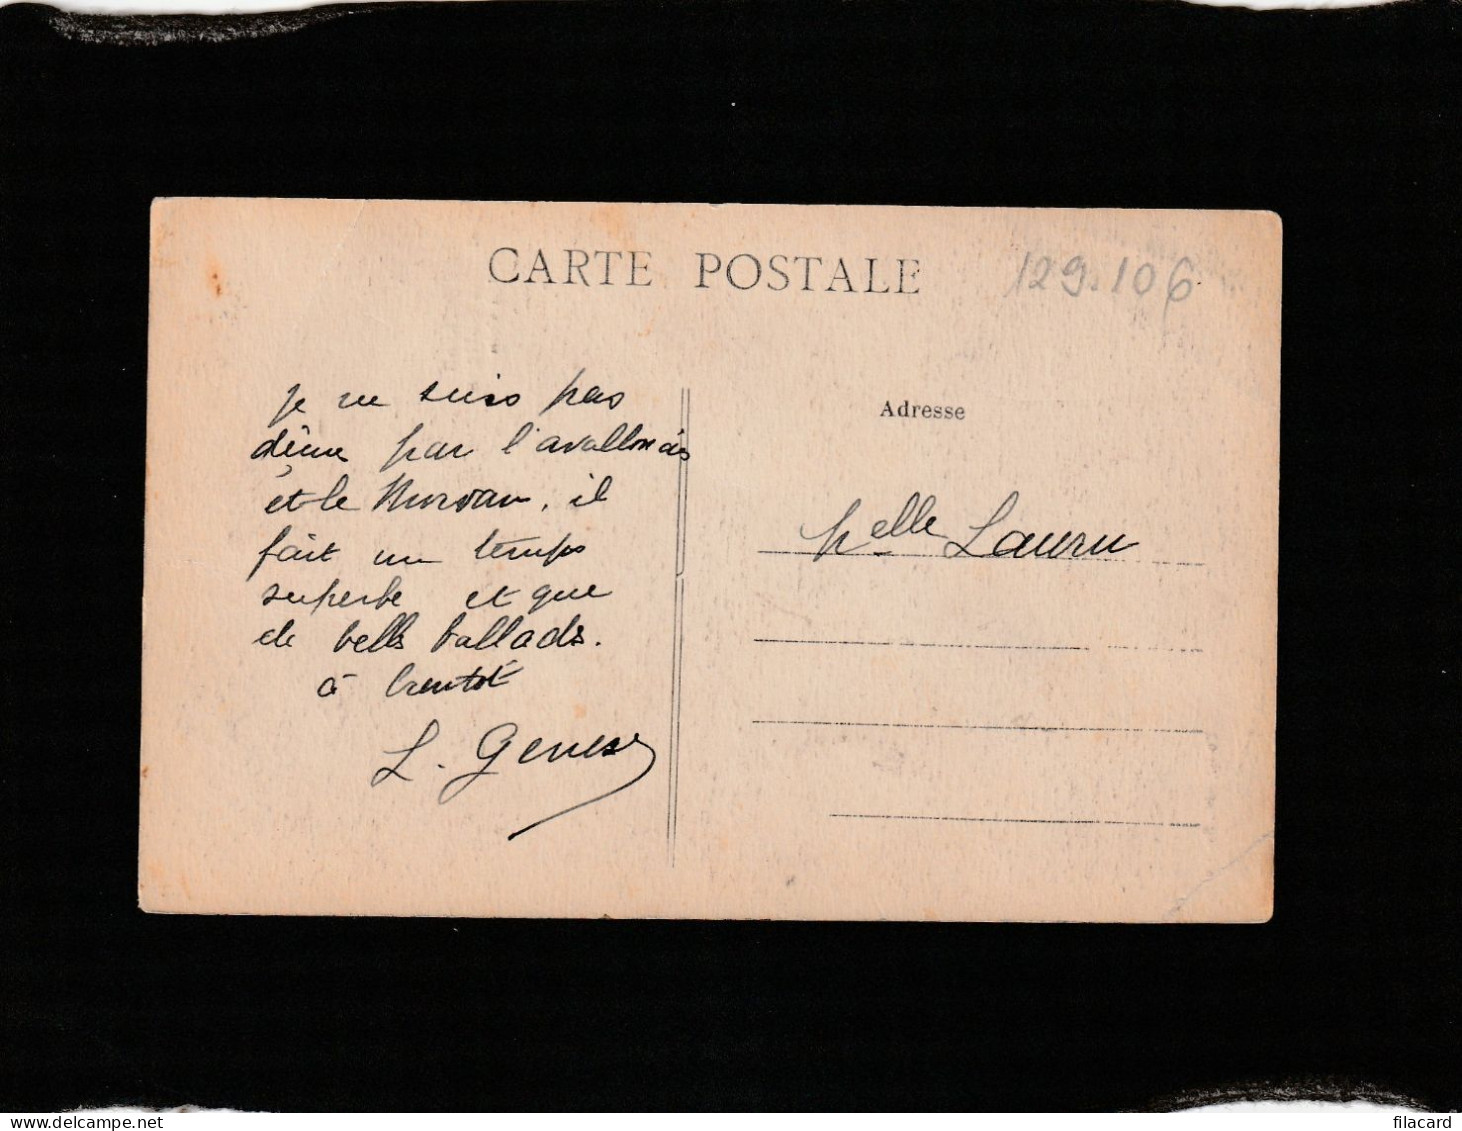 CARTE POSTALE
129.106
je ne suis pas
déçue par l'avallonais
et le Morvan, il
fait un temps
superbe et que
de bells ballads.
à bientôt
L. Geness
Adresse
Melle Laure
filacard